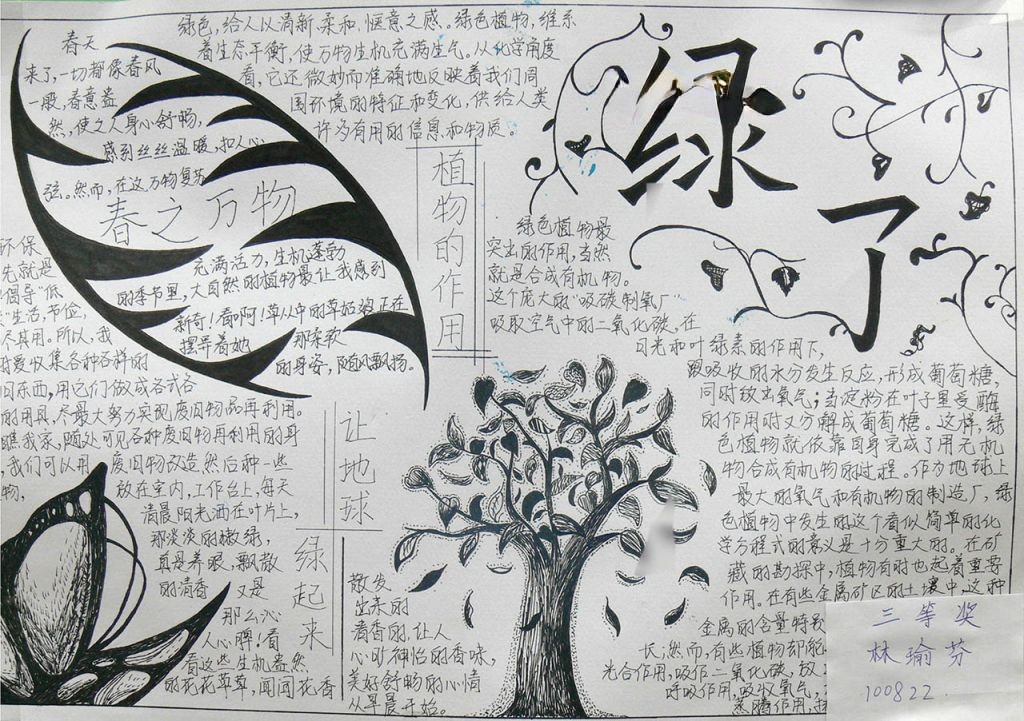 绿了
绿色,给人以清新、柔和、惬意之感。绿色植物,维系
着生态平衡,使万物生机充满生气。从化学角度
看,它还微妙而准确地反映着我们周
围环境的特征和变化,供给人类
许多有用的信息和物质。
春天
来了,一切都像春风
一般,春意盎
然,使之人身心舒畅,
感到丝丝温暖,扣人心
弦。然而,在这万物复苏
春之万物
充满活力,生机蓬勃
的季节里,大自然的植物最让我感到
新奇!看啊!草丛中的草姑娘正在
摆弄着她 那柔软
的身姿,随风飘扬。
植物的作用
绿色植物最
突出的作用,当然
就是合成有机物。
这个庞大的“吸碳制氧厂”
吸取空气中的二氧化碳,在
日光和叶绿素的作用下,
跟吸收的水分发生反应,形成葡萄糖,
同时放出氧气;当淀粉在叶子里受酶
的作用时又分解成葡萄糖。这样,绿
色植物就依靠自身完成了用无机
物合成有机物的过程。作为地球上
最大的氧气和有机物的制造厂,绿
色植物中发生的这个看似简单的化
学方程式的意义是十分重大的。在矿
藏的勘探中,植物有时也起着重要
作用。在有些金属矿区的土壤中,这种
金属的含量特别
长;然而,有些植物却能
光合作用,吸作二氧化碳,放
呼吸作用,吸收氧气,
蒸腾作用,
让地球
绿起来
环保
先就是
倡导“低
”生活,节俭,
尽其用。所以,我
时爱收集各种各样的
旧东西,用它们做成各式各
的用具,尽最大努力实现废旧物品再利用。
瞧我家,随处可见各种废旧物再利用的身
,我们可以用废旧物改造然后种一些
物, 放在室内,工作台上,每天
清晨阳光洒在叶片上,
那淡淡的嫩绿,
真是养眼,飘散
的清香 又是
那么沁
人心脾!看
看这些生机盎然
的花花草草,闻闻花香
散发
出来的
清香的,让人
心旷神怡的香味,
美好舒畅的心情
从早晨开始。
三等奖
林瑜芬
100822